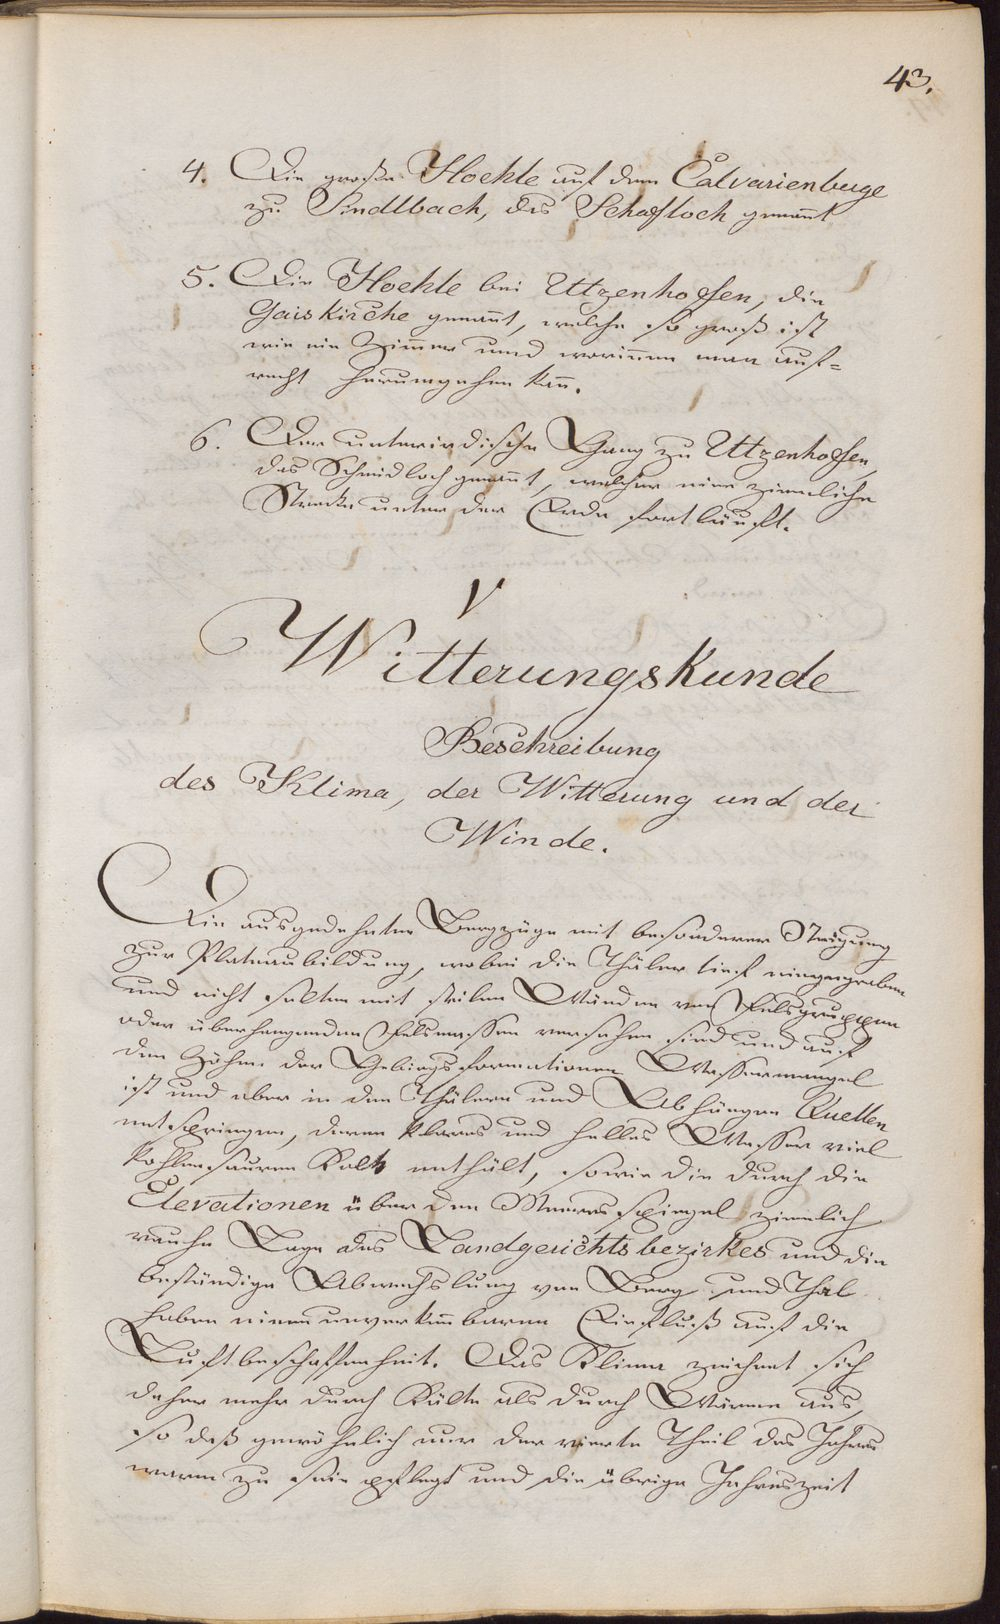 43.
4. Die große Hoehle auf dem Calvarienberge
zu Sindlbach, das Schafloch genannt
5. Die Hoehle bei Utzenhofen, die
Gaiskirche genannt, welche so groß ist
wie ein Zimmer und worinnen man auf=
recht herumgehen kann.
6. Der unterirdische Gang zu Utzenhofen,
das Schmidloch genannt, welcher eine ziemliche
Strecke unter der Erde fortläuft.
V
Witterungskunde
Beschreibung
des Klima, der Witterung und der
Winde.
Die ausgedehnten Bergzüge mit besonderer Neigung
zur Plateaubildung, wobei die Thäler tief eingegraben
und nicht selten mit steilen Wänden von Felsgruppen
oder überhangenden Felsmassen versehen sind und auf
den Höhen der Gebirgsformationen Wassermangel
ist und aber in den Thälern und Abhängen Quellen
entspringen, deren klares und helles Wasser viel
kohlensauren Kalk enthält, sowie die durch die
Elevationen über den Meeresspiegel ziemlich
rauhe Lage des Landgerichtsbezirkes und die
beständige Abwechslung von Berg und Thal
haben einen unverkennbaren Einfluß auf die
Luftbeschaffenheit. Das Klima zeichnet sich
daher mehr durch Kälte als durch Wärme aus,
so daß gewöhnlich nur der vierte Theil des Jahres
warm zu sein pflegt und die übrige Jahreszeit